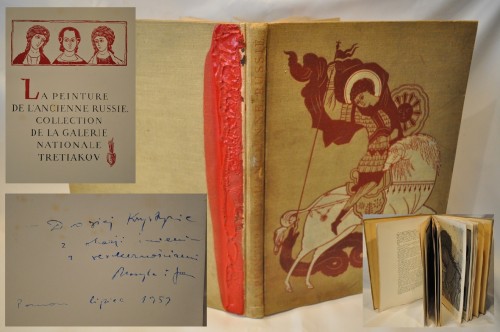 LA PEINTURE
DE L'ANCIENNE RUSSIE.
COLLECTION
DE LA GALERIE
NATIONALE
TRETIAKOV
RUSSIE
Drogiej Krystynie
z okazji imienin
z serdecznościami
Maryla i Jan
lipiec 1959